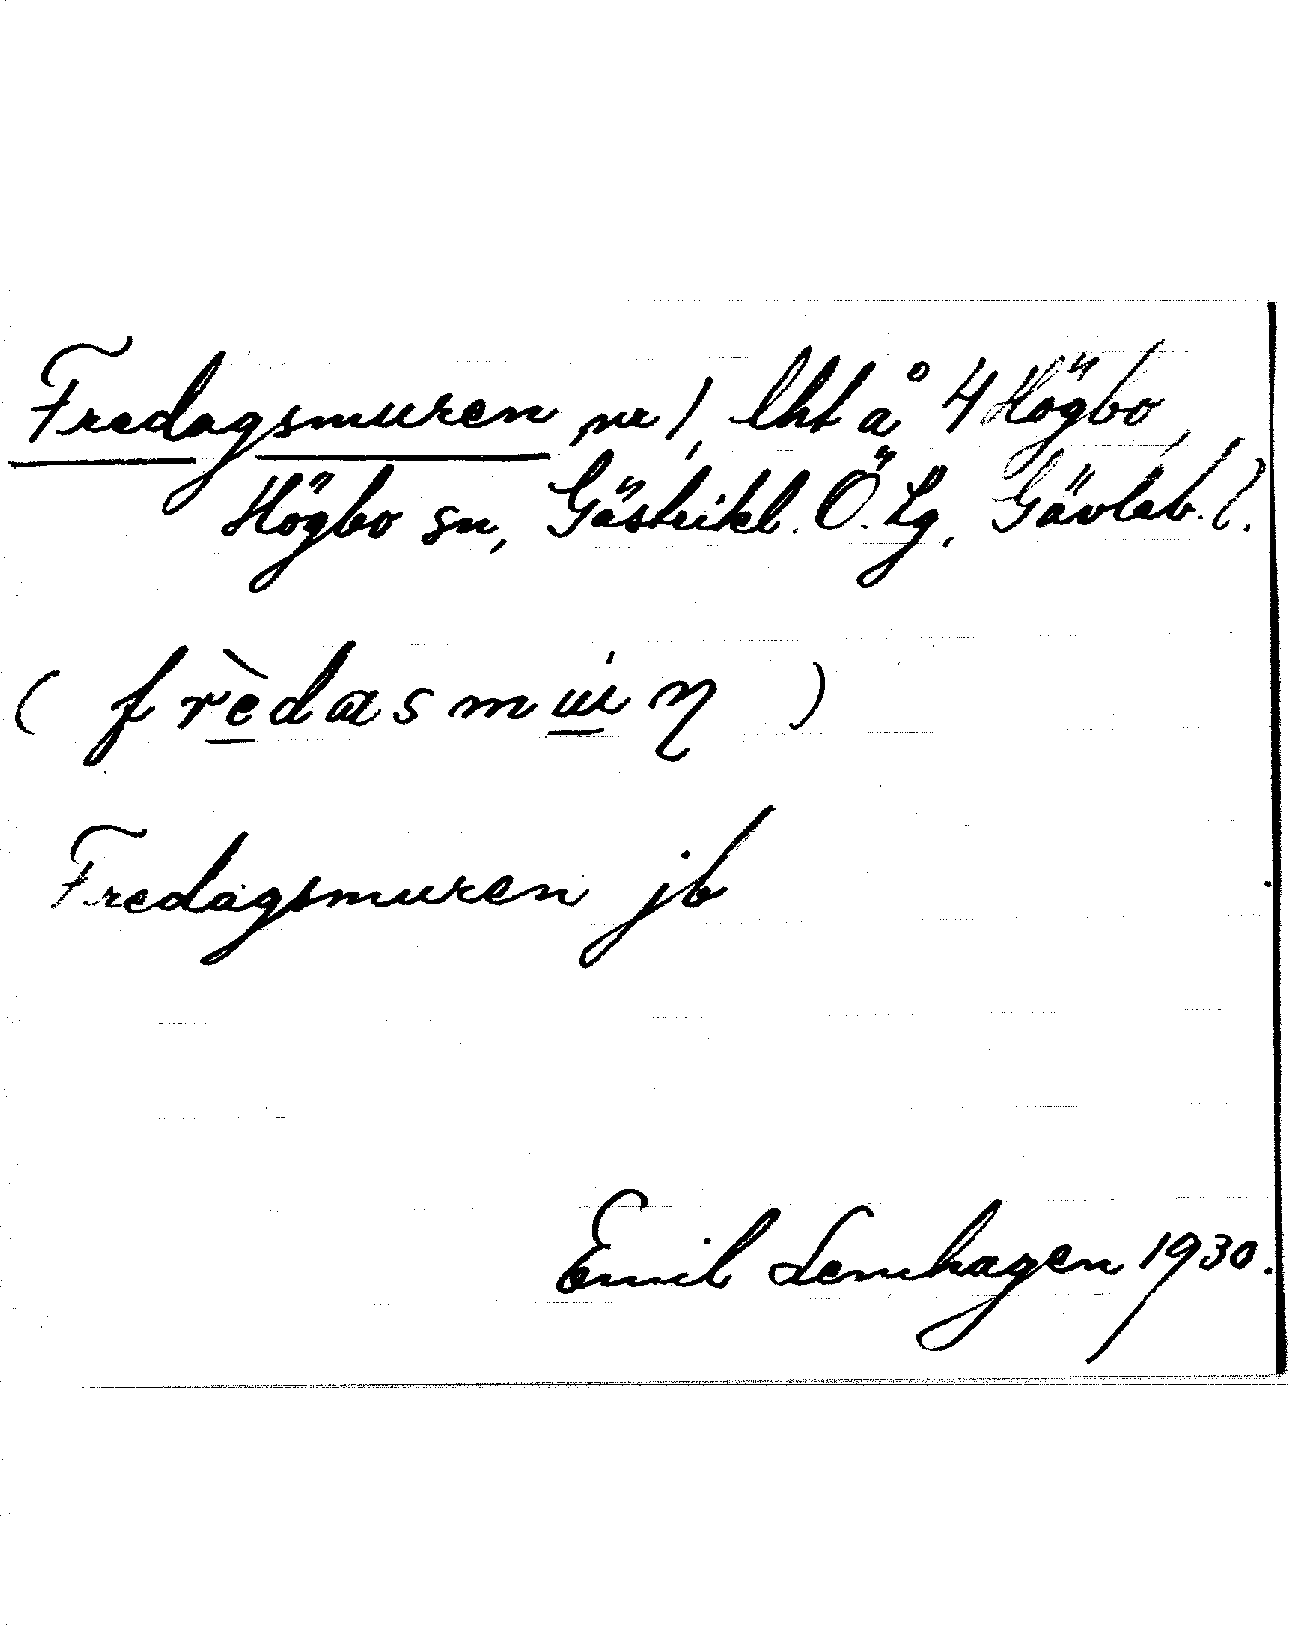 Fredagsmuren, nr 1, lht å 4 Högbo,
Högbo sn, Gästrikl. Ö. Lg, Gävleb. l.
(frèdasmuη)
Fredagsmuren jb
Emil Lemhagen 1930.